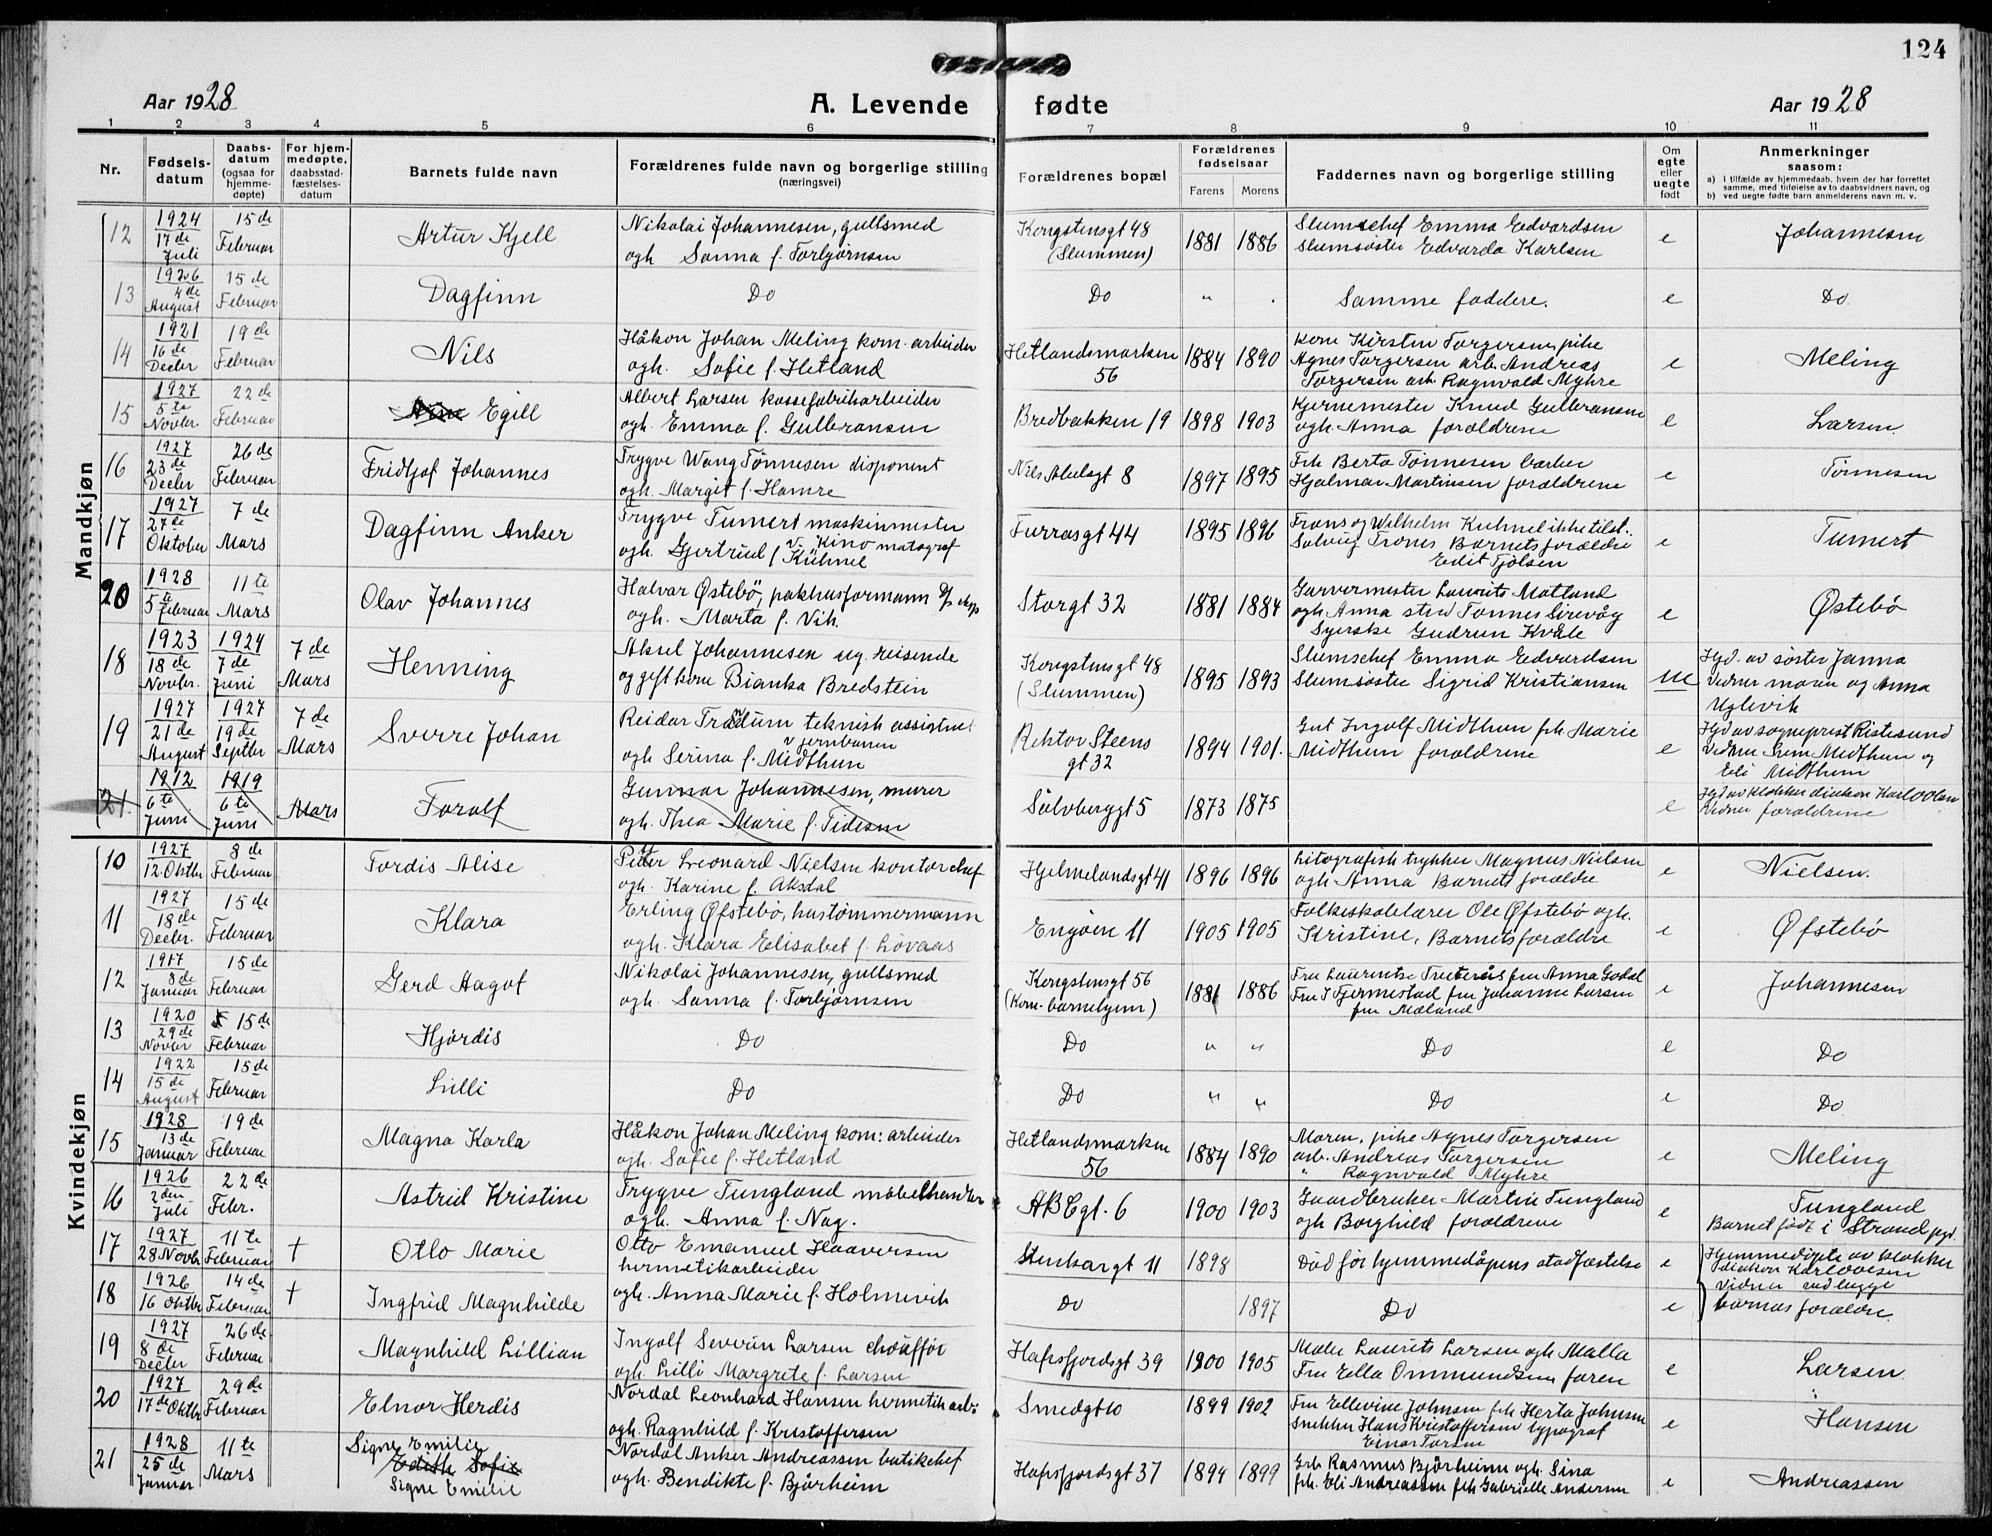 124
Aar 1928 A. Levende fødte Aar 1928
1 2 3 4 5 6 7 8 9 10 11
Nr.
Fødsels-
datum
Daabs-
datum
(ogsaa for
hjemme-
døpte)
For hjem-
medøpte,
daabsstad-
fæstelses-
datum
Barnets fulde navn
Forældrenes fulde navn og borgerlige stilling
(næringsvei)
Forældrenes bopæl
Forældrenes
fødselsaar
Farens Morens
Faddernes navn og borgerlige stilling
Om
egte
eller
uegte
født
Anmerkninger
saasom:
a) i tilfælde av hjemmedaab, hvem der har forrettet
samme, med tilføielse av to daabsvidners navn, og
b) ved uegte fødte barn anmelderens navn m. v.
Mandkjøn
12 1924 15de Nikolai Johannesen, gullsmed Kongstensgt 48 Slumschef Emma Edvardsen
17de Juli Februar Artur Kjell ogh Sanna f. Torbjørnsen (Slummen) 1881 1886 Slumsøster Edvarda Karlsen e Johannesen
13 1926 15de
4de August Februar Dagfinn Do Do " Samme faddere. e Do
14 1921 19de Håkon Johan Meling kom. arbeider Hetlandsmarken Kone Kirstin Torgersen, pike
16de Decbr Februar Nils ogh. Sofie f. Hetland 56 1884 1890 Agnes Torgersen arb. Andreas
Torgersen arb. Ragnvald Myhre e Meling
15 1927 22de Albert Larsen kassefabrikarbeider Kjernemester Knud Gulbransen
5te Novbr Februar Egill ogh. Emma f. Gulbransen Bredbakken 19 1898 1903 ogh. Anna forældrene e Larsen
16 1927 26de Trygve Wang Tønnesen disponent Frk Berta Tønnesen barber
23de Decbr Februar Fridtjof Johannes ogh. Margit f. Hamre Nils Abelsgt 8 1897 1895 Hjalmar Martinsen forældrene e Tønnesen
17 1927 7de Trygve Tumert maskinmester Frans og Wilhelm Kuhnel ikke tilst.
27de Oktober Mars Dagfinn Anker v. Kinomatograf
ogh. Gjertrud f. Kühnel Furrasgt 44 1895 1896 Solvig Trones Barnets forældre
Edit Tjølsen e Tumert
20 1928 11te Halvar Østebö, pakhusformann D/S eksp Garvermester Laurits Matland
5te Februar Mars Olav Johannes ogh. Marta f. Vik. Storgt 32 1881 1884 ogh. Anna Tønnes Sirevåg
Syerske Gudrun Kvåle e Østebö
18 1923 1924 7de Aksel Johannesen ug. reisende Kongstensgt 48 Slumschef Emma Edvardsen Hjd. av søster Janna
18de Novbr. 7de Juni Mars Henning og gift kone Bianka Bredstein (Slummen) 1895 1893 Slumsøster Sigrid Kristiansen ue Vidner mann og Anna
Uglevik
19 1927 1927 7de Reidar teknisk assistent Rektor Steens Gut Ingolf Midthun frk Marie Hjd av sogneprest Ristesund
21de August 19de Septbr Mars Sverre Johan v jernbanen
ogh Serina f. Midthun gt 32 1894 1901. Midthun forældrene e Vidner Midthun og
Eli Midthun
21. 1912 1919 Gunnar Johannesen, murer Hjd av klokker diakon Karl Olsen
6te Juni 6te Juni Mars Toralf ogh. Thea Marie f. Tidesen Sölvberggt 5 1873 1875 e Vidner forældrene
Kvindekjøn
10 1927 8de Peder Leonard Nielsen kontorchef Litografisk trykker Magnus Nielsen
12.Oktbr Februar Tordis Alise ogh. Karine f. Aksdal Hjelmelandsgt 41 1896 1896 ogh Anna Barnets forældre e Nielsen.
11 1927 15de Erling Øfstebö, hustømmermann Folkeskolelærer Ole Øfstebö ogh.
18de Decbr. Februar Klara ogh. Klara Elisabet f. Lövaas Engöien 11 1905 1905 Kristine, Barnets forældre e Øfstebö
12 1917 15de Nikolai Johannesen, gullsmed Kongstensgt 56 Fru Laurentse fru Anna Godal
8de Januar Februar Gerd Hagof ogh. Sanna f. Torbjørnsen (Kom. barnehjem) 1881 1886 Fru Tjermestad fru Johanne Larsen
fru Mæland e Johannesen
13 1920 15de
29de Novbr Februar Hjördis Do Do " " Do e Do
14 1922 15de
15de August Februar Lilli Do Do " " Do e Do
15 1928 19de Håkon Johan Meling kom: arbeider Hetlandsmarken Maren, pike Agnes Torgersen
13de Januar Februar Magna Karla ogh. Sofie f. Hetland 56 1884 1890 arb. Andreas Torgersen
" Ragnvald Myhre e Meling
16 1926 22de Trygve Tungland möbelhandler Gaardbruker Martin Tungland Tungland
2den Juli Febr. Astrid Kristine ogh. Anna f. Nag. ABCgt. 6 1900 1903 ogh Borghild forældrene e Barnet født i Strand pgd.
17 1927 11te Otto Emanuel Haaversen Hjemmedöpte av klokker
28 Novbr Februar † Otlo Marie hermetikarbeider Stenkargt 11 1898 Död för hjemmedåpens stadfæstelse e diakon Karl Olsen
18 1926 14de Vidner ved begge
16 Oktbr Februar † Ingfrid Magnhilde ogh. Anna Marie f Holmevik Do 1897 Do e barnas forældre.
19 1927 26de Ingolf Severin Larsen chaufför Maler Laurits Larsen ogh Malla
8de Decbr Februar Magnhild Lillian ogh. Lilli Margrete f. Larsen Hafrsfjordsgt 39 1900 1905 Fru Ella Ommundsen faren e Larsen
20 1927 29de Nordal Leonhard Hansen hermetikarb: Fru Ellevine Johnsen frk Herta Johnsen
17de Oktbr Februar Elnor Herdis ogh. Ragnhild f. Kristoffersen Smedgt 10 1899 1902 Snekker Hans Kristoffersen typograf
Einar Torsen e Hansen
21 1928 11te Signe Emilie Nordal Anker Andreassen butikchef Grb Rasmus Bjørheim ogh. Sina
25de Januar Mars Edith Sofie
Signe Emilie ogh. Bendikte f. Bjørheim Hafrsfjordsgt 37 1894 1899 frk. Eli Andreassen frk Gabrielle Andersen e Andreassen